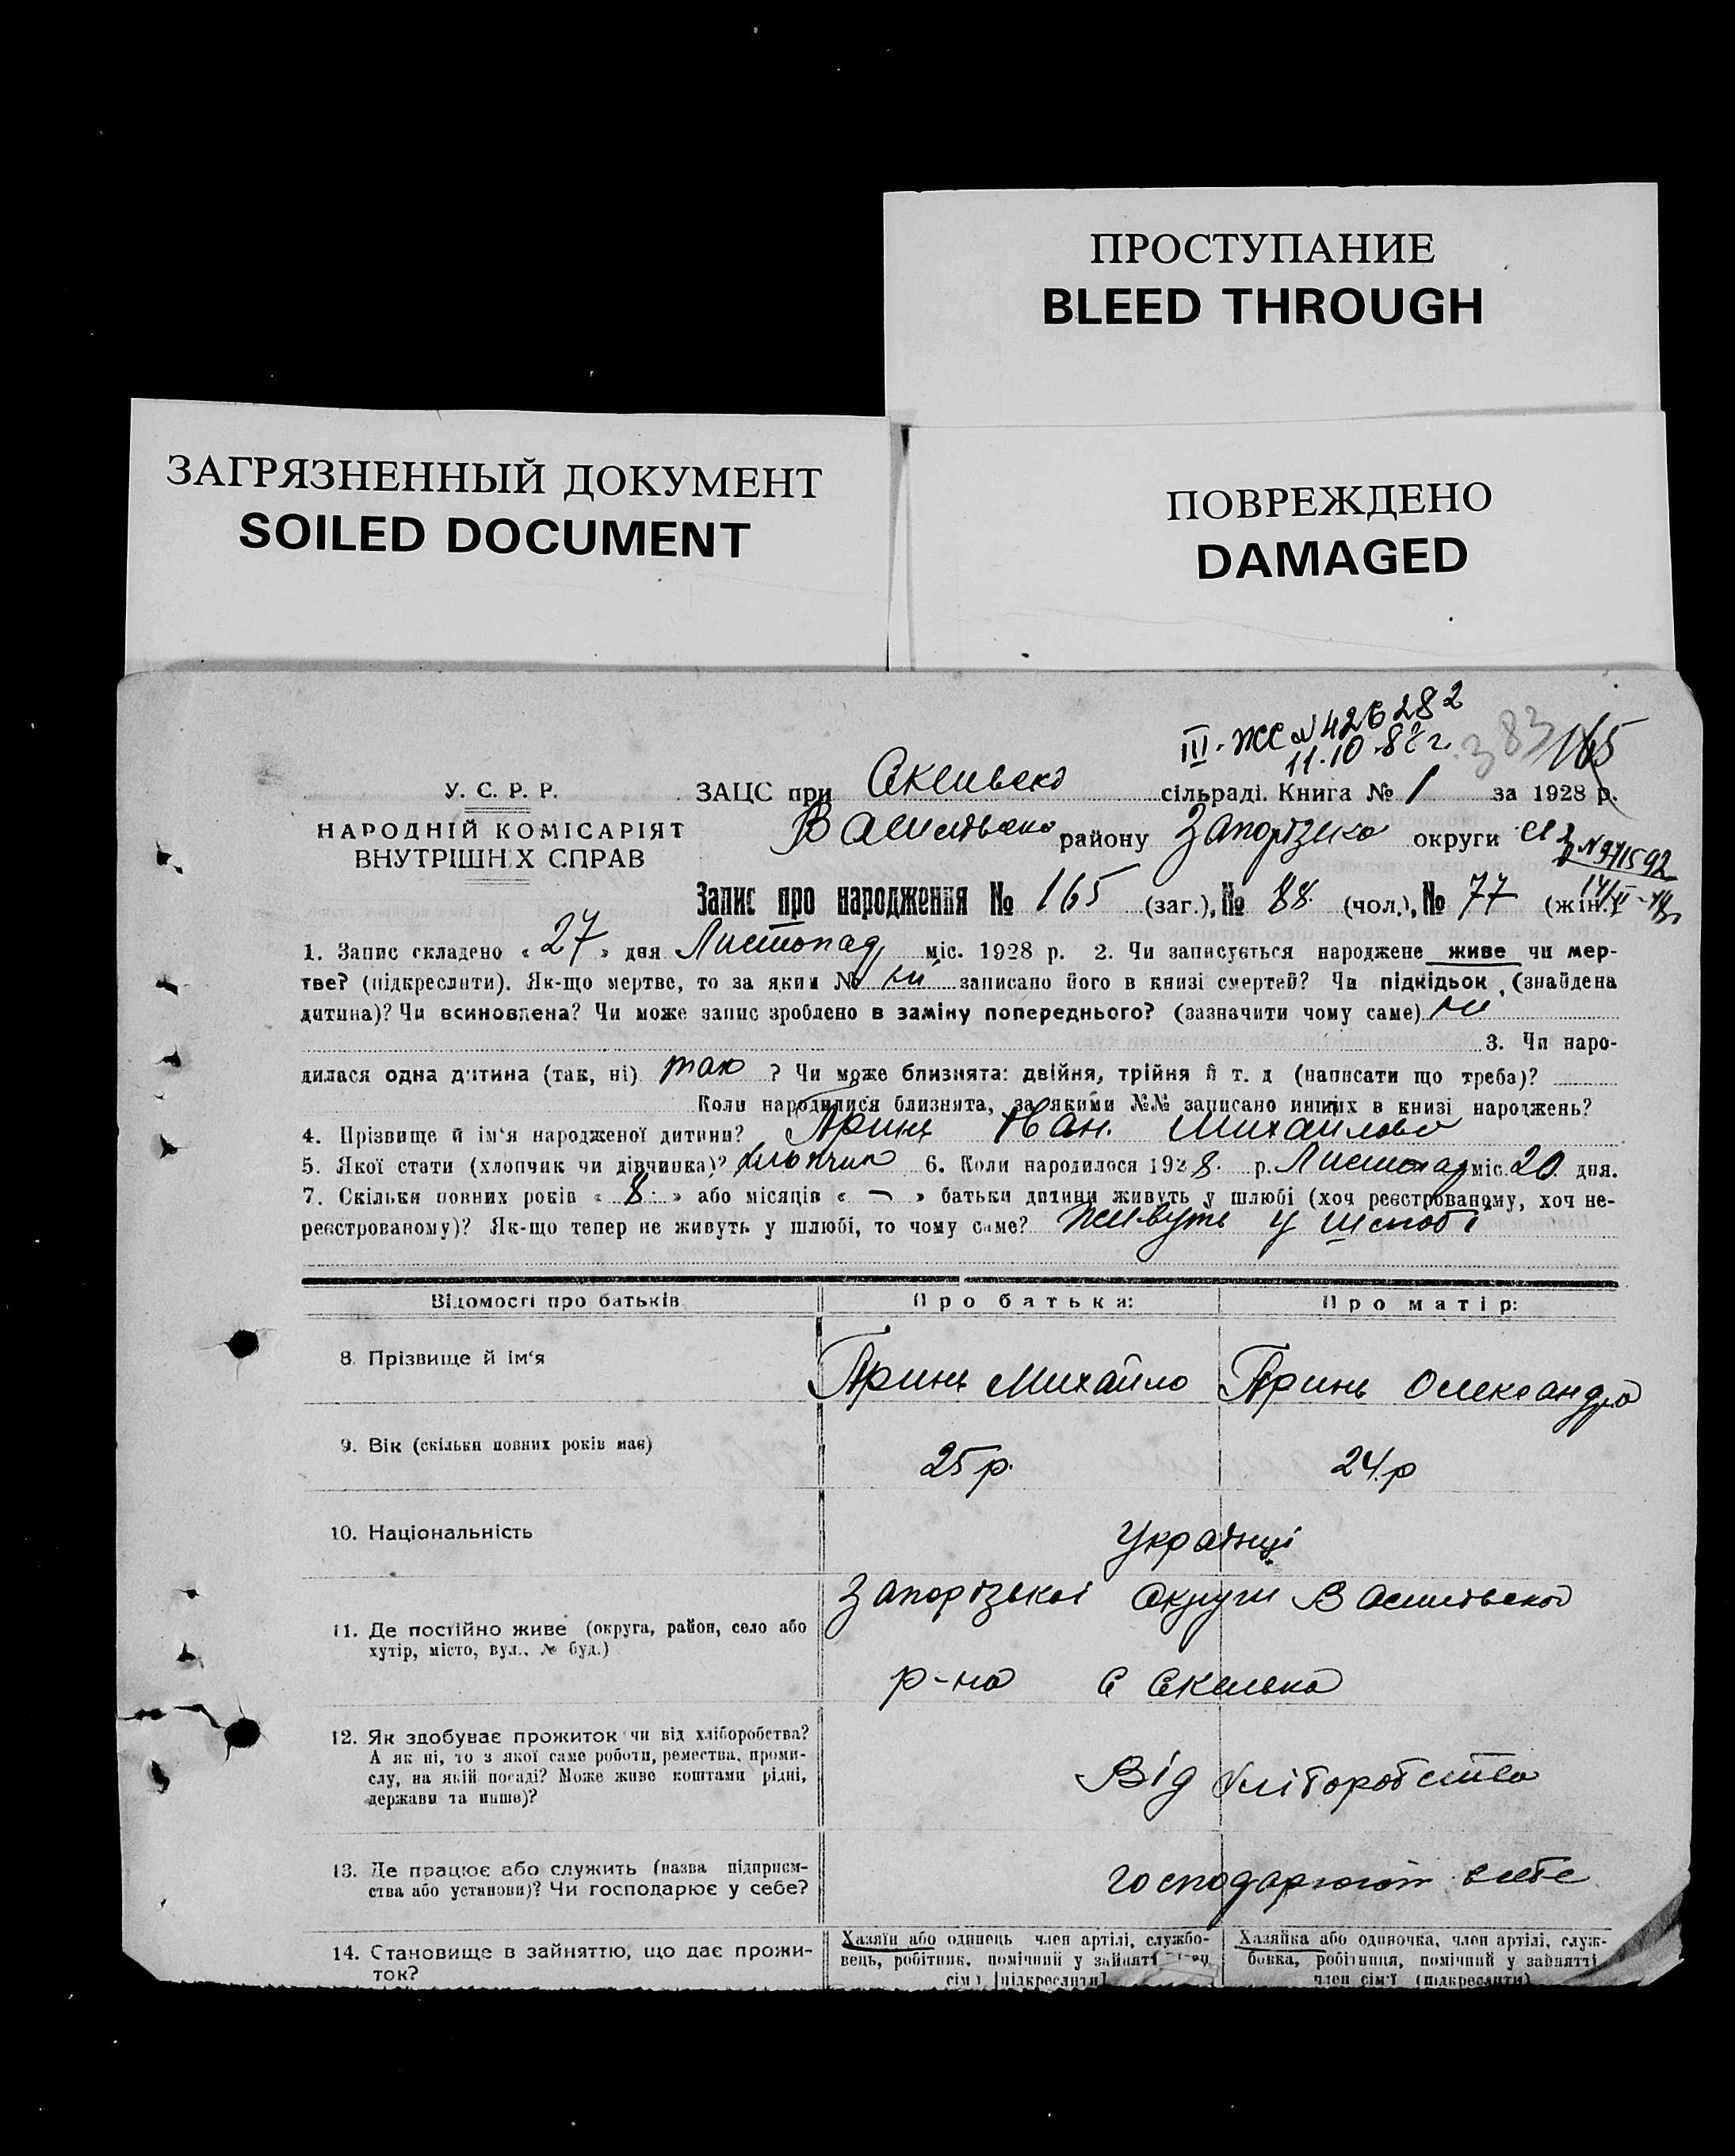 ПРОСТУПАНИЕ
BLEED THROUGH
ЗАГРЯЗНЕННЫЙ ДОКУМЕНТ
SOILED DOCUMENT
ПОВРЕЖДЕНО
DAMAGED
III-ЖС № 426282
11.10.88 г.
383 165
У. С. Р. Р.
ЗАЦС при Скельско сільраді. Книга № 1 за 1928 р.
НАРОДНІЙ КОМІСАРІЯТ
ВНУТРІШНІХ СПРАВ
Василівсько району Запорізько округи
Запис про народження № 165 (заг.), № 88 (чол.), № 77 (жін.)
1. Запис складено « 27 » дня Листопад міс. 1928 р. 2. Чи записується народжене живе чи мер-
тве? (підкреслити). Як-що мертве, то за яким № ні записано його в книзі смертей? Чи підкідьок (знайдена
дитина)? Чи всиновлена? Чи може запис зроблено в заміну попереднього? (зазначити чому саме) ні
3. Чи наро-
дилася одна дитина (так, ні) так ? Чи може близнята: двійня, трійня й т. д (написати що треба)?
Коли народилися близнята, за якими №№ записано инших в книзі народжень?
4. Прізвище й ім'я народженої дитини? Принь Іван Михайлово
5. Якої стати (хлопчик чи дівчинка)? хлопчик 6. Коли народилося 1928 р. Листопад міс. 20 дня.
7. Скільки повних років « 8 » або місяців « – » батьки дитини живуть у шлюбі (хоч реєстрованому, хоч не-
реєстрованому)? Як-що тепер не живуть у шлюбі, то чому саме? Живуть у шлюбі
Відомості про батьків Про батька: Про матір:
8. Прізвище й ім'я Принь Михайло Принь Олександра
9. Вік (скільки повних років має) 25 р. 24 р
10. Національність Українці
Запорізької Округи Василівської
11. Де постійно живе (округа, район, село або
хутір, місто, вул., № буд.)
р-на С Скелька
12. Як здобуває прожиток чи від хліборобства?
А як ні, то з якої саме роботи, ремества, проми-
слу, на якій посаді? Може живе коштами рідні,
держави та инше)?
Від хліборобства
13. Де працює або служить (назва підприєм-
ства або установи)? Чи господарює у себе?
господарюють в себе
14. Становище в зайняттю, що дає прожи-
ток?
Хазяїн або одинець член артілі, службо-
вець, робітник, помічний у зайнятті член
сім'ї [підкреслити]
Хазяйка або одиночка, член артілі, служ-
бовка, робітниця, помічний у зайнятті
член сім'ї (підкреслити)